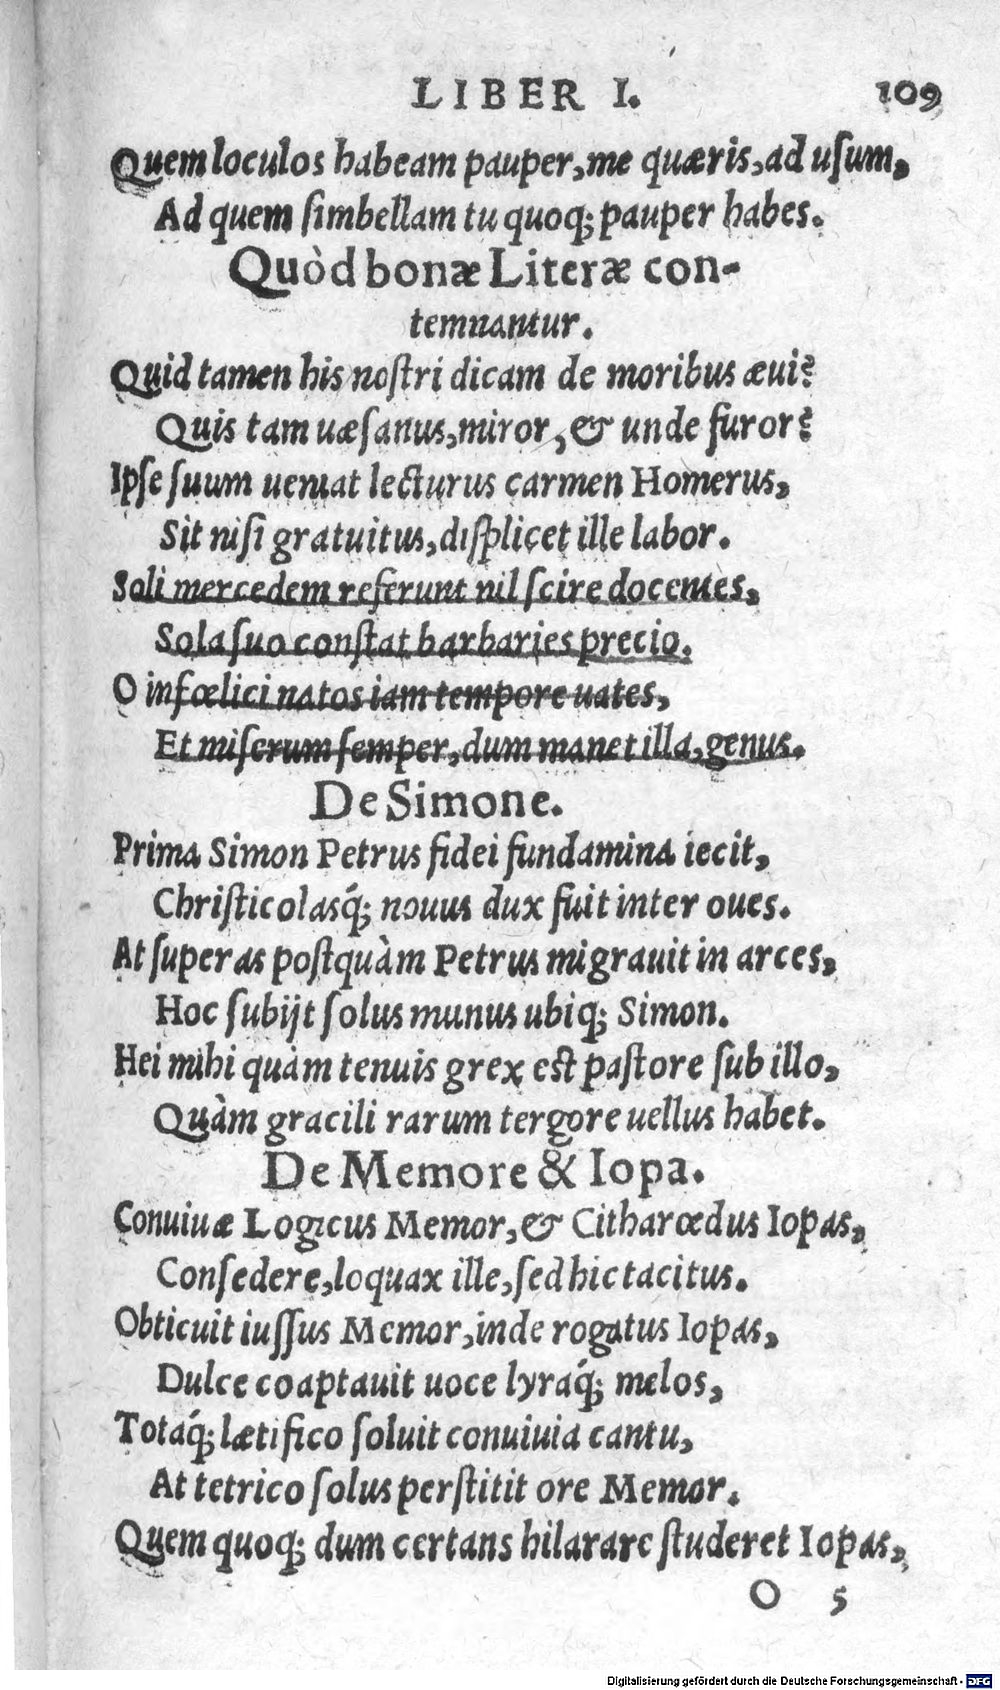 LIBER I. 109
Quem loculos habeam pauper, me quæris, ad uſum,
Ad quem ſimbellam tu quoq; pauper habes.
Quòd bonæ Literæ con-
temnantur.
Quid tamen his noſtri dicam de moribus æui?
Quis tam uæſanus, miror, & unde furor?
Ipſe ſuum ueniat lecturus carmen Homerus,
Sit niſi gratuitus, diſplicet ille labor.
Soli mercedem referunt nil ſcire docentes,
Sola ſuo conſtat barbaries precio.
O infœlici natos iam tempore uates,
Et miſerum ſemper, dum manet illa, genus.
De Simone.
Prima Simon Petrus fidei fundamina iecit,
Chriſticolasq́; nouus dux fuit inter oues.
At ſuperas poſtquàm Petrus migrauit in arces,
Hoc ſubijt ſolus munus ubiq; Simon.
Hei mihi quàm tenuis grex eſt paſtore ſub illo,
Quàm gracili rarum tergore uellus habet.
De Memore & Iopa.
Conuiuæ Logicus Memor, & Citharœdus Iopas,
Conſedere, loquax ille, ſed hic tacitus.
Obticuit iuſſus Memor, inde rogatus Iopas,
Dulce coaptauit uoce lyraq́; melos,
Totaq́; lætifico ſoluit conuiuia cantu,
At tetrico ſolus perſtitit ore Memor.
Quem quoq; dum certans hilarare ſtuderet Iopas,
O 5
Digitalisierung gefördert durch die Deutsche Forschungsgemeinschaft - DFG